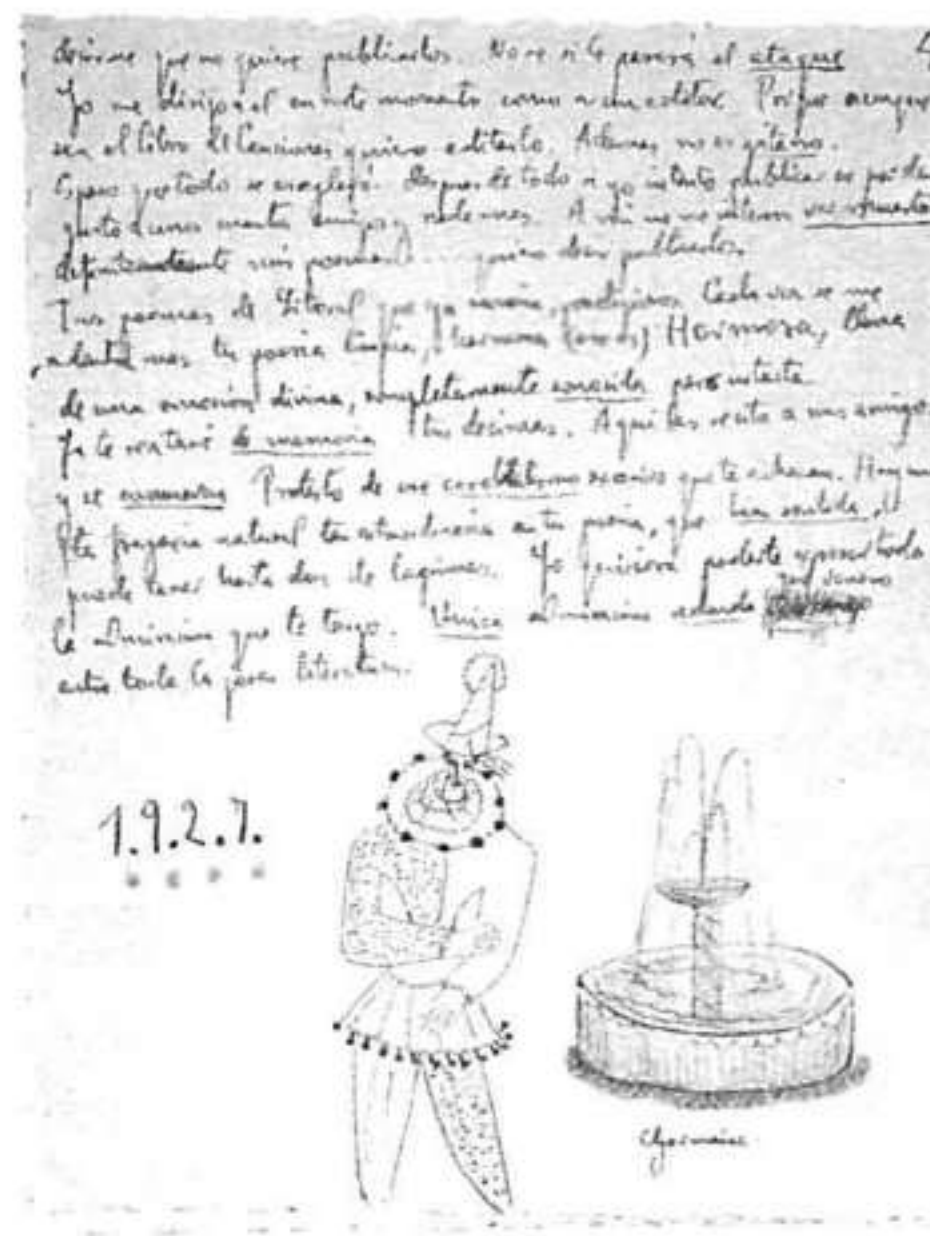 decirme que no quiere publicarlos. No se si le pasará el ataque 4
Yo me dirijo a el en este momento como a un editor. Porque aunque
sea el libro de Canciones quiero editarlo. Ademas no es gitano.
Espero que todo se arreglará. Despues de todo si yo intento publicar es por dar
gusto a unos cuantos amigos y nada mas. A mi no me interesa ver muertos
definitivamente mis poemas quiero decir publicados.
Tus poemas de Litoral que ya conocia, Cada vez se me
mas tu poesia limpia, hermosa Hermosa, llena
de una emoción divina, completamente conocida pero intacta
Ya te recitaré de memoria tus decimas. Aqui las recito a mis amigos
y se Protesto de ese cerebralismo que te achacan. Hay una
natural tan extraordinaria en tu poesia, que bien sentida,
puede tener hasta don de lagrimas. Yo quisiera poderte expresar toda
la admiración que te tengo. Unica admiración
entre toda la joven literatura.
1.9.2.7.